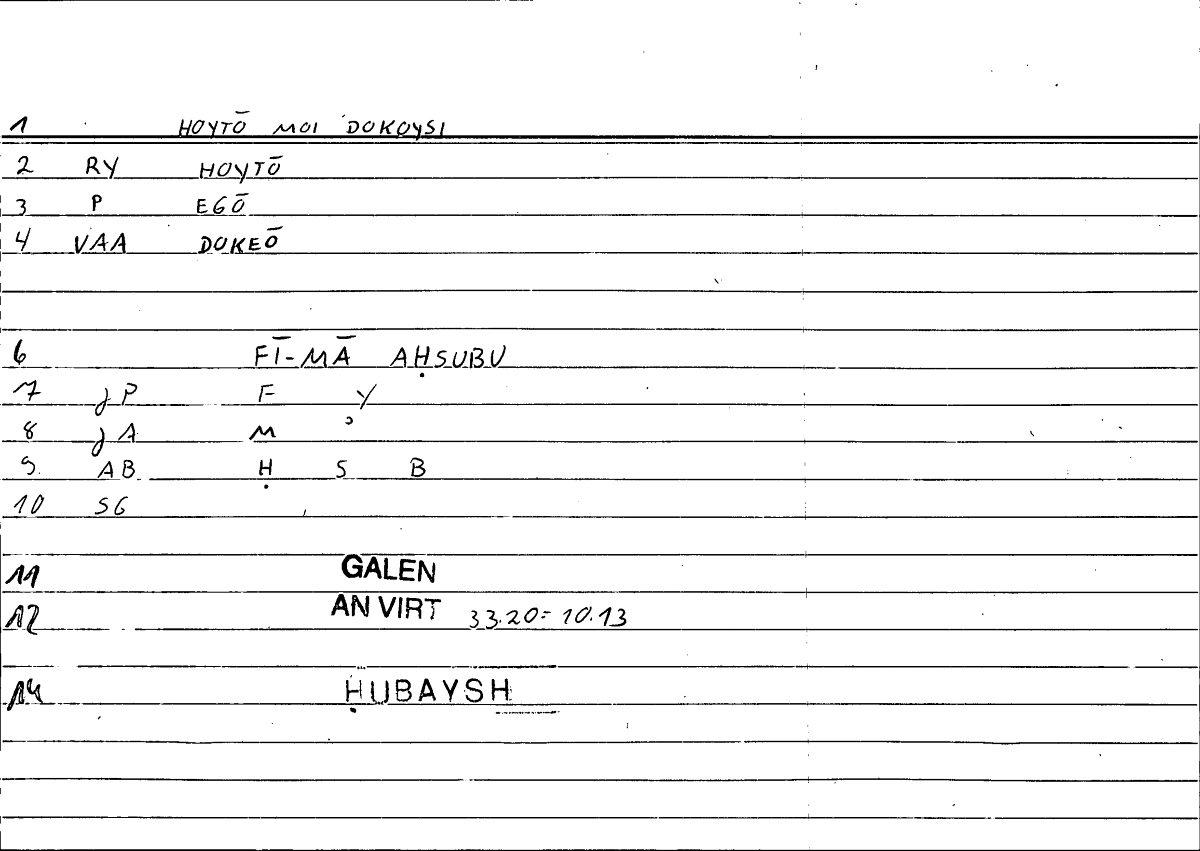 1 HOYTŌ MOI DOKOYSI
2 RY HOYTŌ
3 P EGŌ
4 VAA DOKEŌ
6 FĪ-MĀ AḤSUBU
7 JP F Y
8 JA M ʾ
9. AB Ḥ S B
10 SG
11 GALEN
12 AN VIRT 33.20 = 10.13
14 ḤUBAYSH